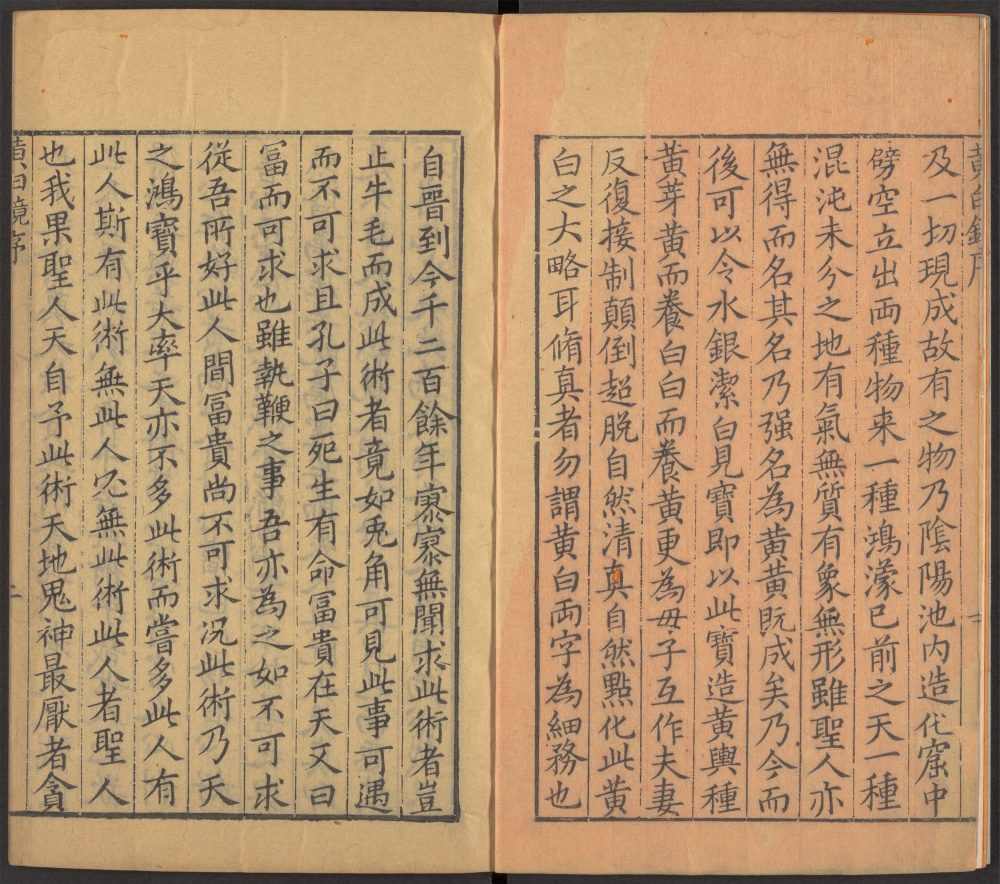 黃白鏡序
及一切現成故有之物乃陰陽池內造化窟中
劈空立出両種物来一種鴻濛已前之天一種
混沌未分之地有氣無質有象無形雖聖人亦
無得而名其名乃强名為黃黃既成矣乃今而
後可以令水銀潔白見寶即以此寶造黃輿種
黃芽黃而養白白而養黃更為母子互作夫妻
反復接制顛倒超脱自然清真自然點化此黃
白之大略耳脩真者勿謂黃白両字為細務也
一
自晋到今千二百餘年寥寥無聞求此術者豈
止牛毛而成此術者竟如兎角可見此事可遇
而不可求且孔子曰死生有命冨貴在天又曰
冨而可求也雖執鞭之事吾亦為之如不可求
従吾所好此人間冨貴尚不可求况此術乃天
之鴻寶乎大率天亦不多此術而嘗多此人有
此人斯有此術無此人忍無此術此人者聖人
也我果聖人天自予此術天地鬼神最厭者貪
黃白鏡序
二